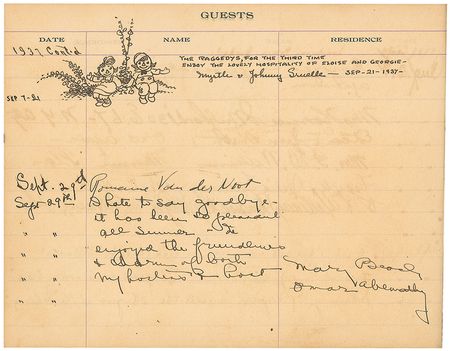 GUESTS
DATE NAME RESIDENCE
1937 Cont'd
THE RAGGEDYS, FOR THE THIRD TIME
ENJOY THE LOVELY HOSPITALITY OF ELOISE AND GEORGIE-
Myrtle & Johnny Gruelle — SEP-21-1937-
SEP 7-21
Sept. 29th Romaine Van der Noot
Sept 29th I hate to say goodbye-
" " it has been so pleasant
" " all summer -
" " enjoyed the friendliness
" " & charm of both
" " my hostess & host
Mary
Omar Abernathy